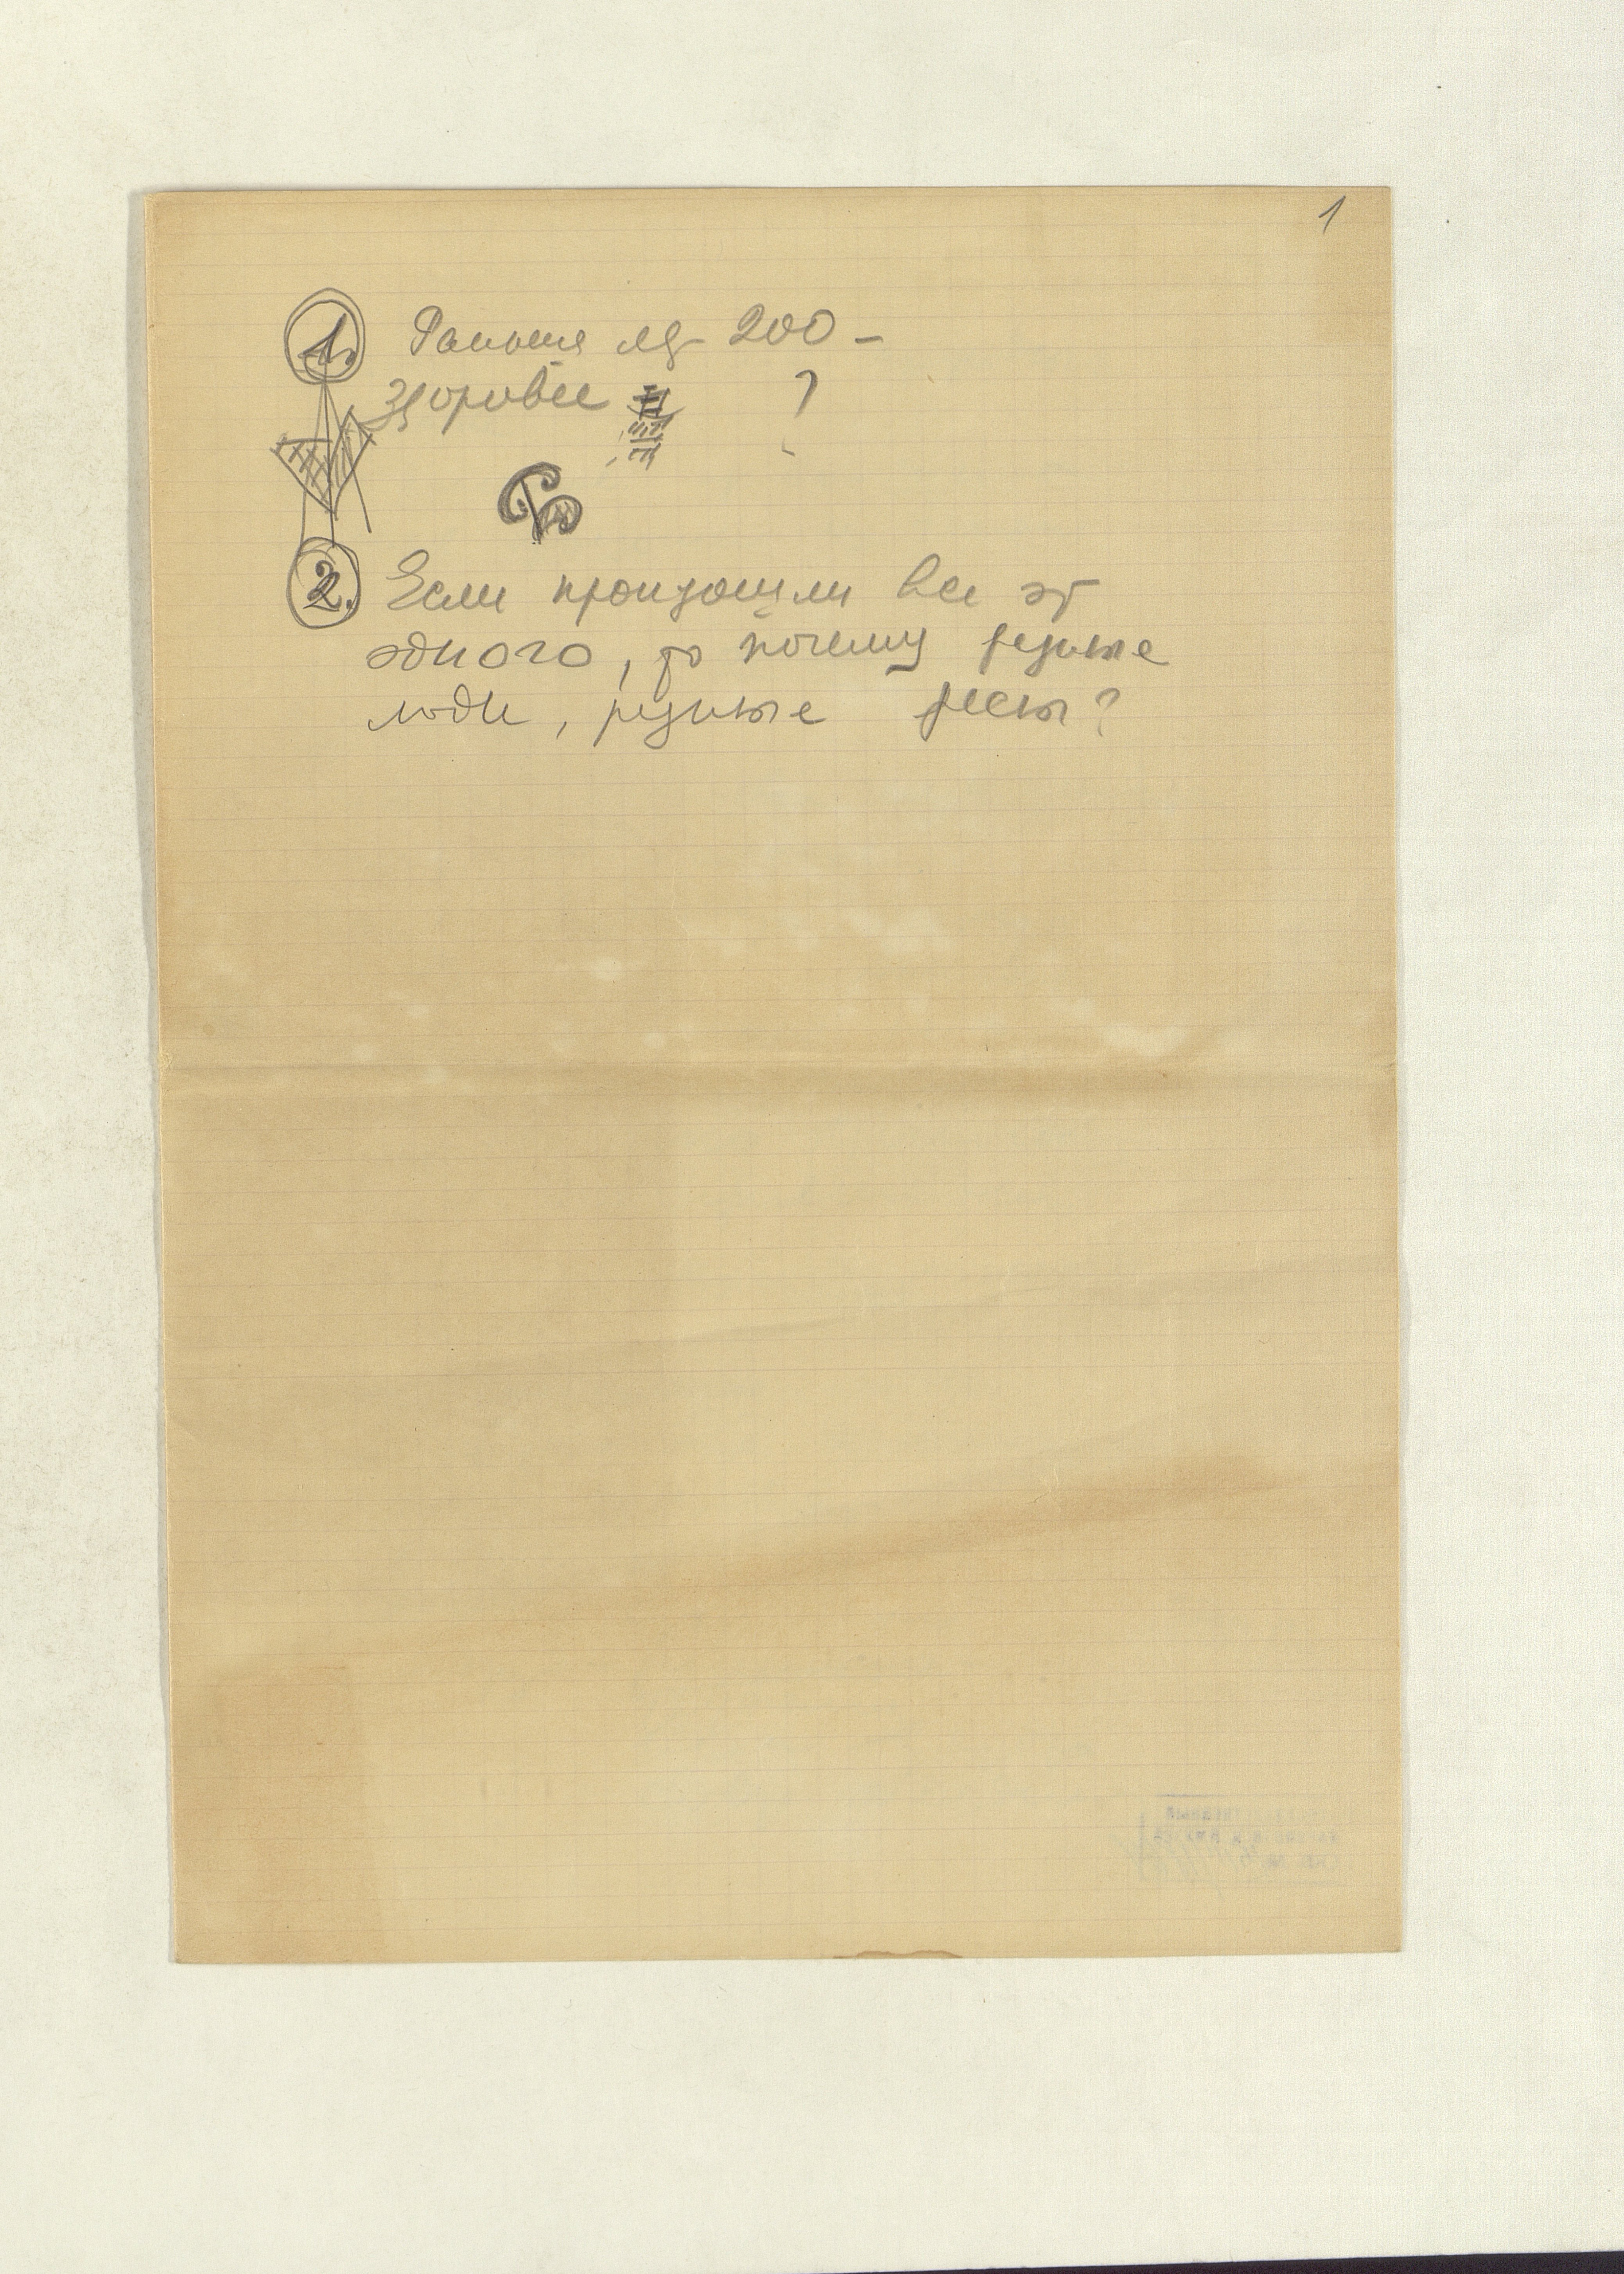 1
1. Раньше лет 200 –
здоровее ?
2. Если произошли все от
одного, то почему разные
люди, разные расы?